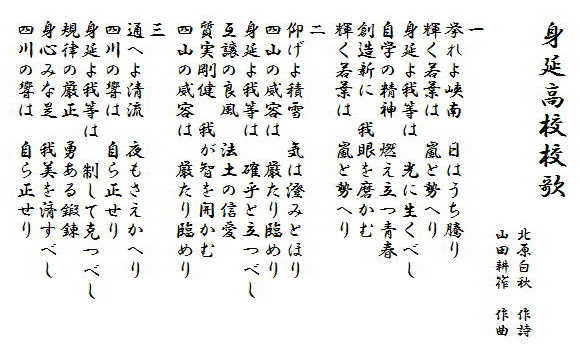 身延高校校歌
北原白秋　作詩
山田耕筰　作曲
一
挙れよ峡南　日はうち騰り
輝く若葉は　嵐と勢へり
身延よ我等　光に生くべし
自学の精神　燃え立つ青春
創造新に　我眼を磨かむ
輝く若葉は　嵐と勢へり
二
仰げよ積雪　気は澄みとほり
四山の威容は　厳たり臨めり
身延よ我等　確乎と立つべし
互譲の良風　法土の信愛
質実剛健　我が智を開かむ
四山の威容は　厳たり臨めり
三
通へよ清流　夜もさえかへり
四川の響は　自ら正せり
身延よ我等は　制して克つべし
規律の厳正　勇ある鍛錬
身心みな是　我美を済すべし
四川の響は　自ら正せり